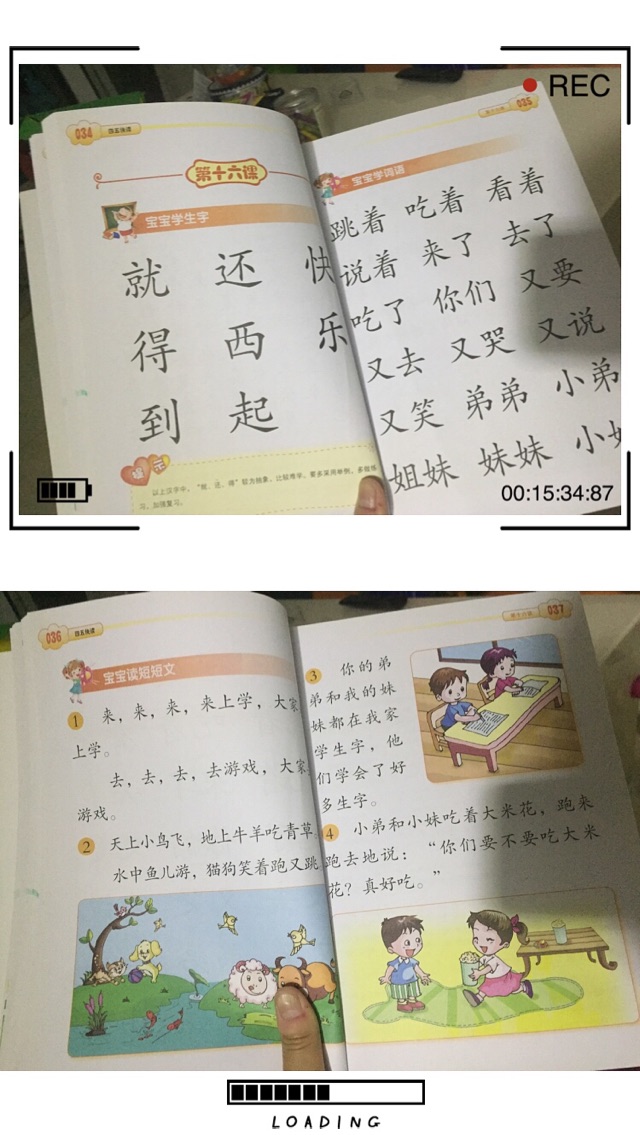 REC
034 四五快读
第十六课
宝宝学生字
就 还 快
得 西 乐
到 起
提示
以上汉字中，“就、还、得”较为抽象，比较难学，要多采用举例，多做练
习，加强复习。
035
宝宝学词语
跳着 吃着 看着
说着 来了 去了
吃了 你们 又要
又去 又哭 又说
又笑 弟弟 小弟
姐妹 妹妹 小妹
00:15:34:87
036 四五快读
宝宝读短短文
1 来，来，来，来上学，大家
上学。
去，去，去，去游戏，大家
游戏。
2 天上小鸟飞，地上牛羊吃青草，
水中鱼儿游，猫狗笑着跑又跳
037
3 你的弟
弟和我的妹
妹都在我家
学生字，他
们学会了好
多生字。
4 小弟和小妹吃着大米花，跑来
跑去地说：“你们要不要吃大米
花？真好吃。”
LOADING